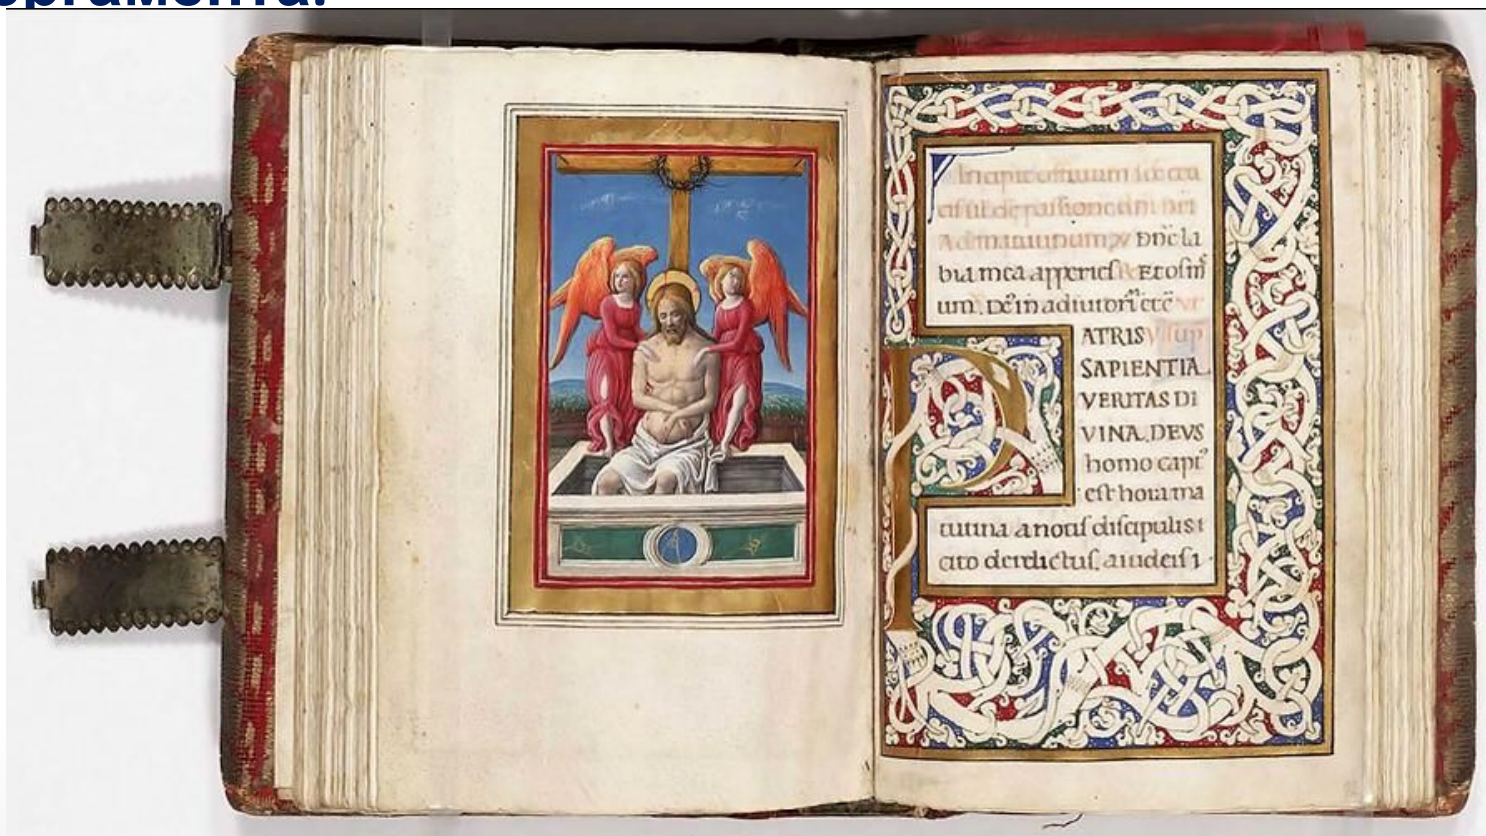 ергамента.
Incipit officium s̄c̄e cru
cis ul' de passione d̄n̄i n̄r̄i
Ad matutinum. V̄ Dn̄e la
bia mea apperies. Et os m̄
um. De' in adiutor̄ etc̄
ATRIS
SAPIENTIA
VERITAS DI
VINA. DEVS
homo capt'
est hora ma
tutina a notis discipulis
cito derelictus, a iudeis